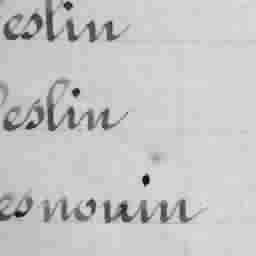 eslin
eslin
esnouin